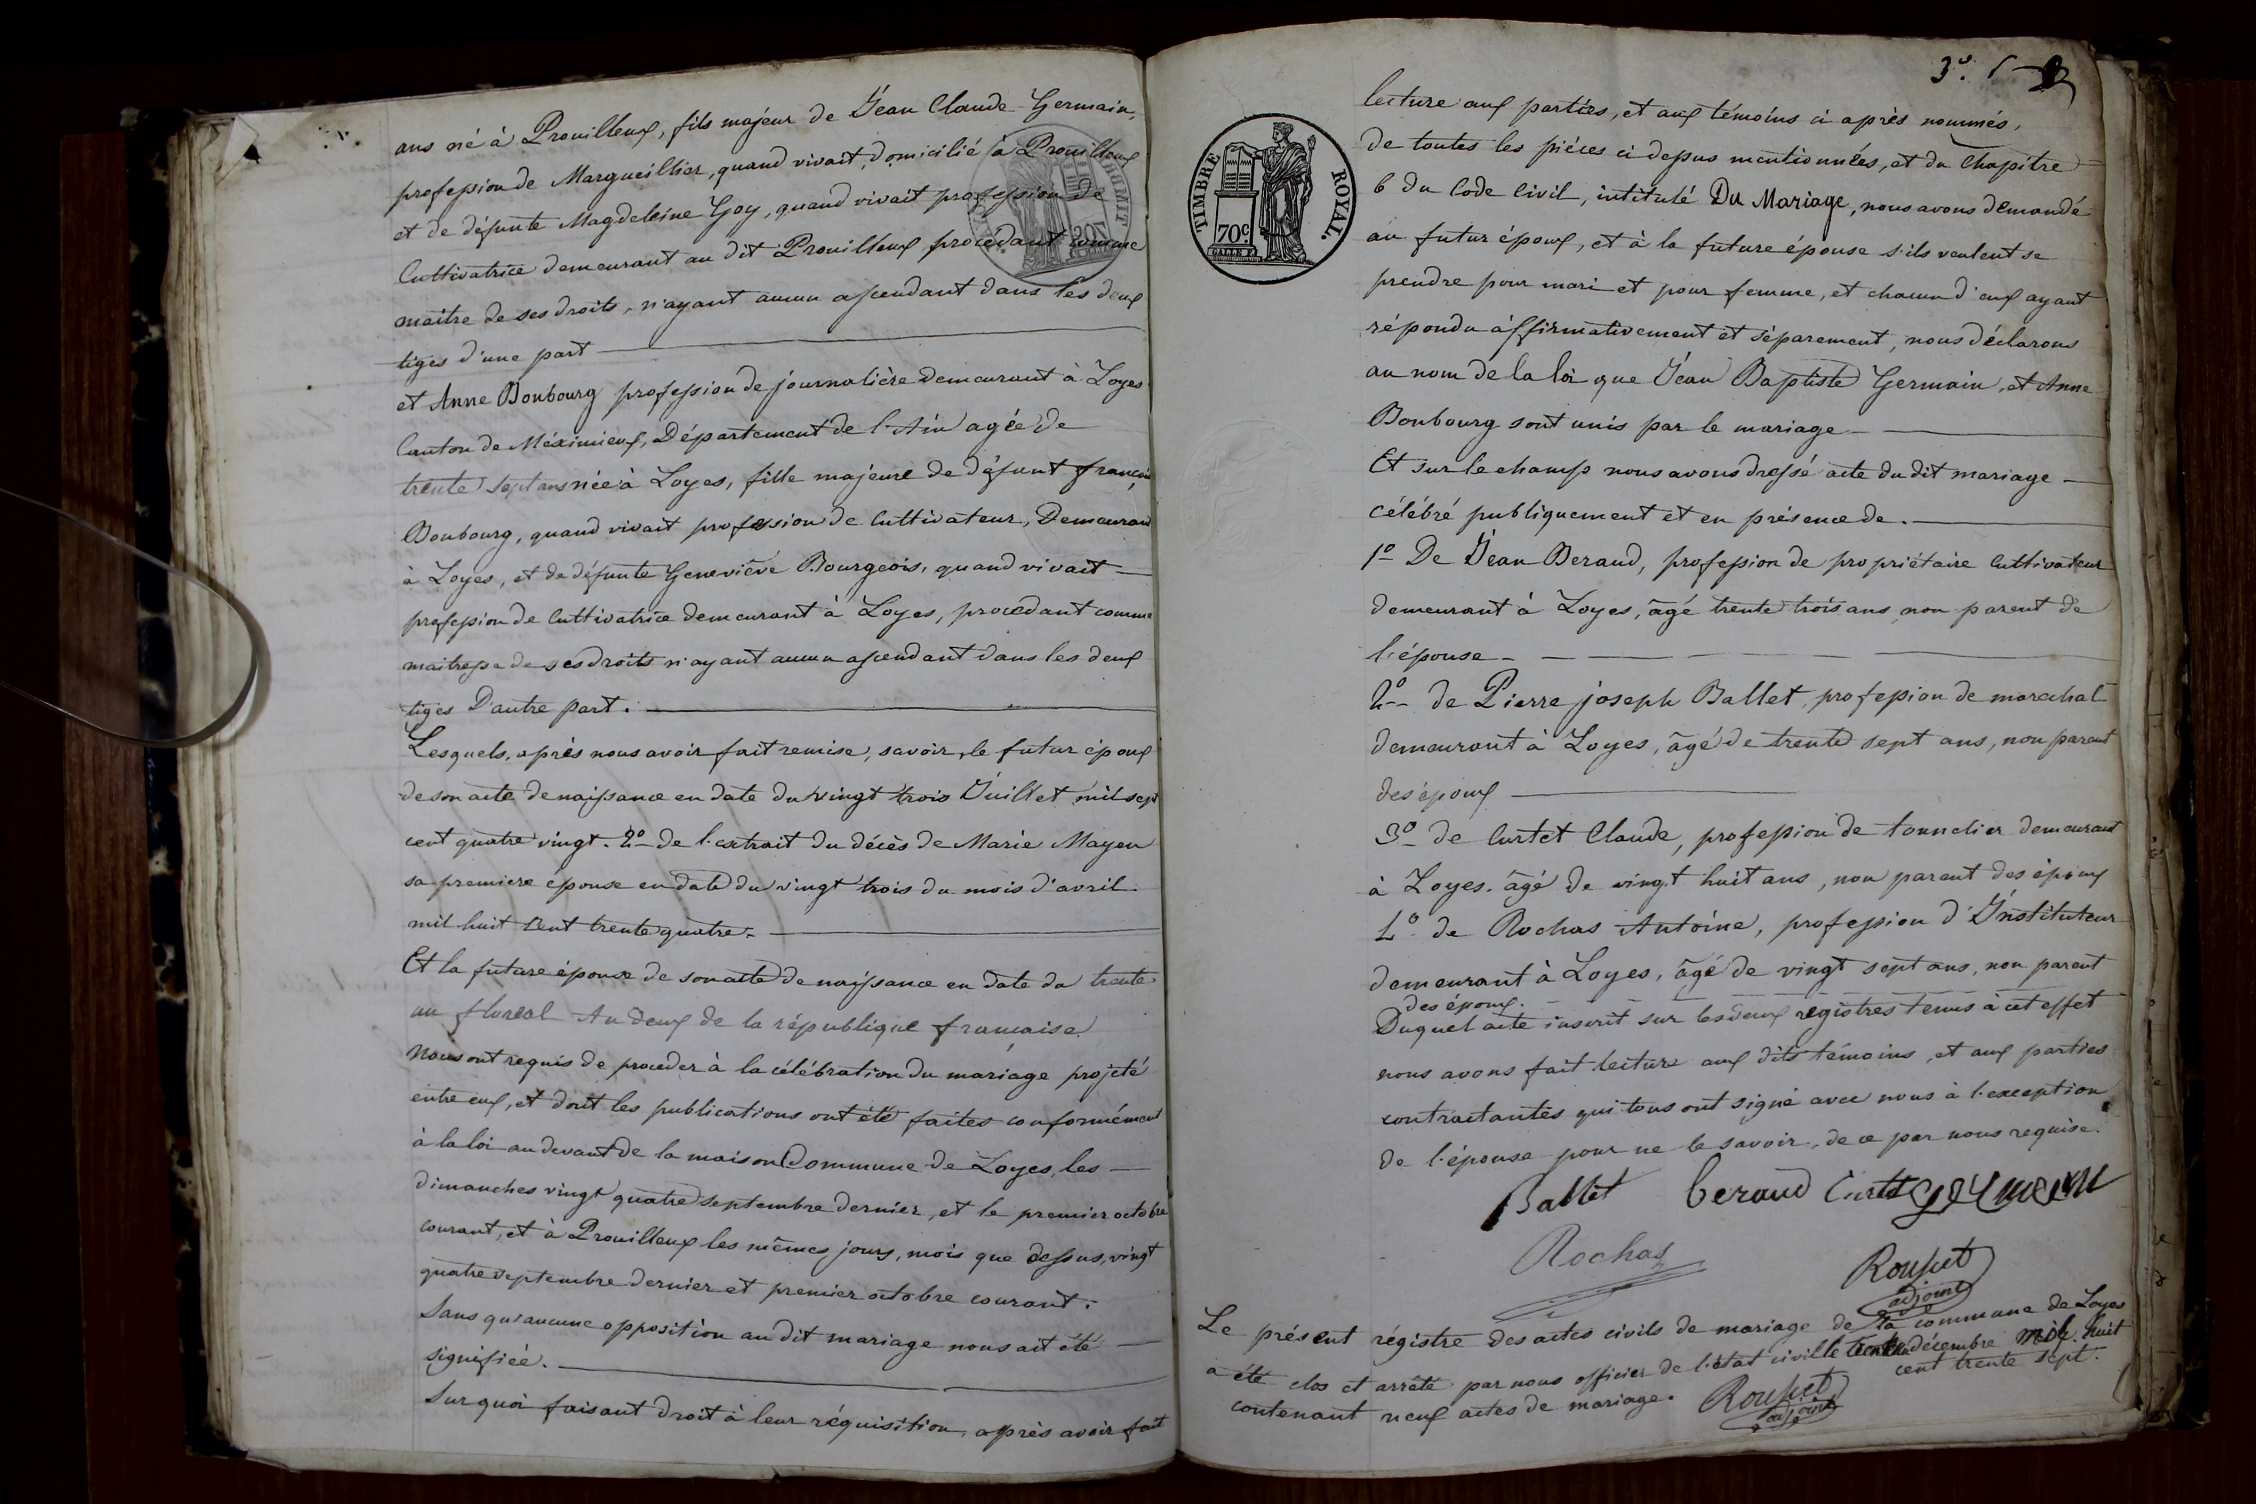 ans né à Prouilleux, fils majeur de Jean Claude Germain,
profession de Margueillier, quand vivait, domicilié à Prouilleux
et de défunte Magdeleine Goy, quand vivait profession de
Cultivatrice demeurant au dit Prouilleux procédant comme
maitre de ses droits, n'ayant aucun ascendant dans les deux
tiges d'une part
et Anne Bonbourg profession de journalière demeurant à Loyes
Canton de Méximieux, Département de l'Ain agée de
trente sept ans née à Loyes, fille majeure de défunt françois
Bonbourg, quand vivait profession de Cultivateur, Demeurant
à Loyes, et de défunte Geneviève Bourgeois, quand vivait
profession de Cultivatrice demeurant à Loyes, procédant comme
maitresse de ses droits n'ayant aucun ascendant dans les deux
tiges D'autre part.
Lesquels, après nous avoir fait remise, savoir, le futur époux
de son acte de naissance en date du vingt trois Juillet mil sept
cent quatre vingt. 2o de l'extrait du décès de Marie Mayen
sa premiere épouse en date du vingt trois du mois d'avril
mil huit Cent trente quatre.
Et la future épouse de son acte de naissance en date du trente
un floreal An deux de la république francaise
Nous ont requis de proceder à la célébration du mariage projeté
entre eux, et dont les publications ont été faites conformément
à la loi au devant de la maison Commune de Loyes, les
dimanches vingt quatre septembre dernier, et le premier octobre
courant, et à Prouilleux les mêmes jours, mois que dessus, vingt
quatre septembre dernier et premier octobre courant.
Sans qu'aucune opposition au dit mariage nous ait été
signifiée.
Sur quoi faisant droit à leur réquisition, après avoir fait
3e.
TIMBRE ROYAL.
70c
lecture aux parties, et aux témoins ci après nommés,
de toutes les pièces ci dessus mentionnées, et du Chapitre
6 du Code Civil, intitulé Du Mariage, nous avons demandé
au futur époux, et à la future épouse s'ils veulent se
prendre pour mari et pour femme, et chacun d'eux ayant
répondu affirmativement et séparement, nous déclarons
au nom de la loi que Jean Baptiste Germain, et Anne
Bonbourg sont unis par le mariage
Et sur le champ nous avons dressé acte du dit mariage
célébré publiquement et en présence de.
1o De Jean Beraud, profession de propriétaire Cultivateur
demeurant à Loyes, âgé trente trois ans, non parent de
l'épouse
2o de Pierre joseph Ballet, profession de marechal
demeurant à Loyes, âgé de trente sept ans, non parent
des époux
3o de Curtet Claude, profession de tonnelier demeurant
à Loyes. âgé de vingt huit ans, non parent des époux
4o de Rochas Antoine, profession d'Instituteur
demeurant à Loyes, âgé de vingt sept ans, non parent
des époux.
Duquel acte inscrit sur les deux registres tenus à cet effet
nous avons fait lecture aux dits témoins, et aux parties
contractantes qui tous ont signé avec nous à l'exception
de l'épouse pour ne le savoir, de ce par nous requise.
Ballet beraud Curtet germain
Rochas
Rousset
adjoint
Le présent régistre des actes civils de mariage de la commune de Loyes
a été clos et arrêté par nous officier de l'état civil le trente décembre mil huit
cent trente sept.
contenant neuf actes de mariage. Rousset
adjoint